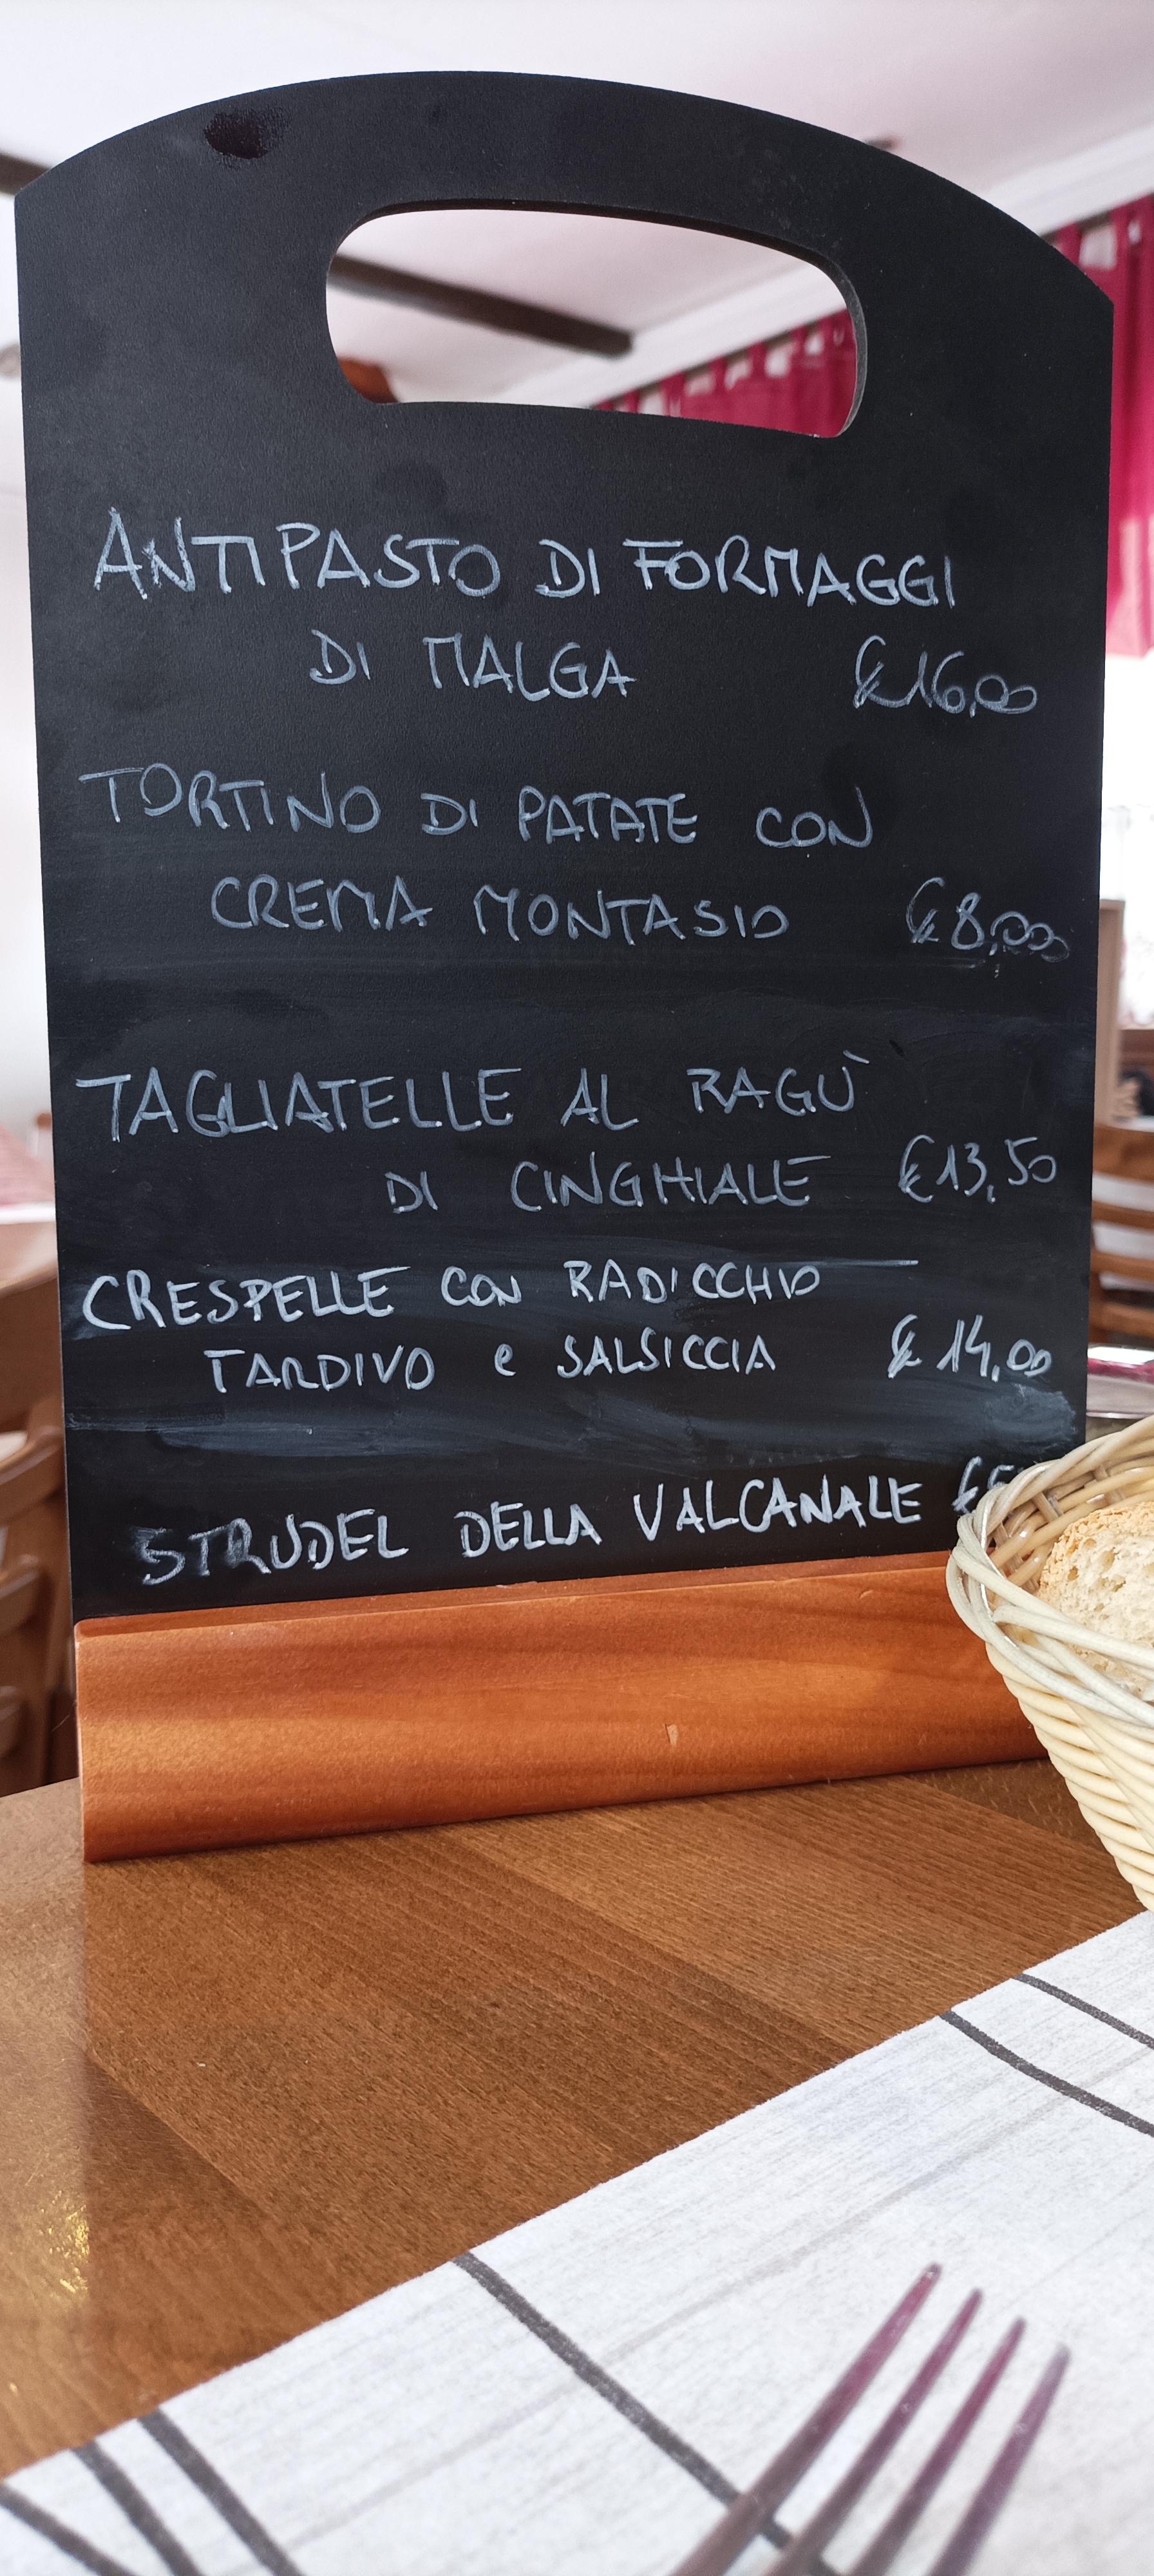 ANTIPASTO DI FORMAGGI
DI MALGA €16,00
TORTINO DI PATATE CON
CREMA MONTASIO €8,00
TAGLIATELLE AL RAGÙ
DI CINGHIALE €13,50
CRESPELLE CON RADICCHIO
TARDIVO e SALSICCIA € 14,00
STRUDEL DELLA VALCANALE